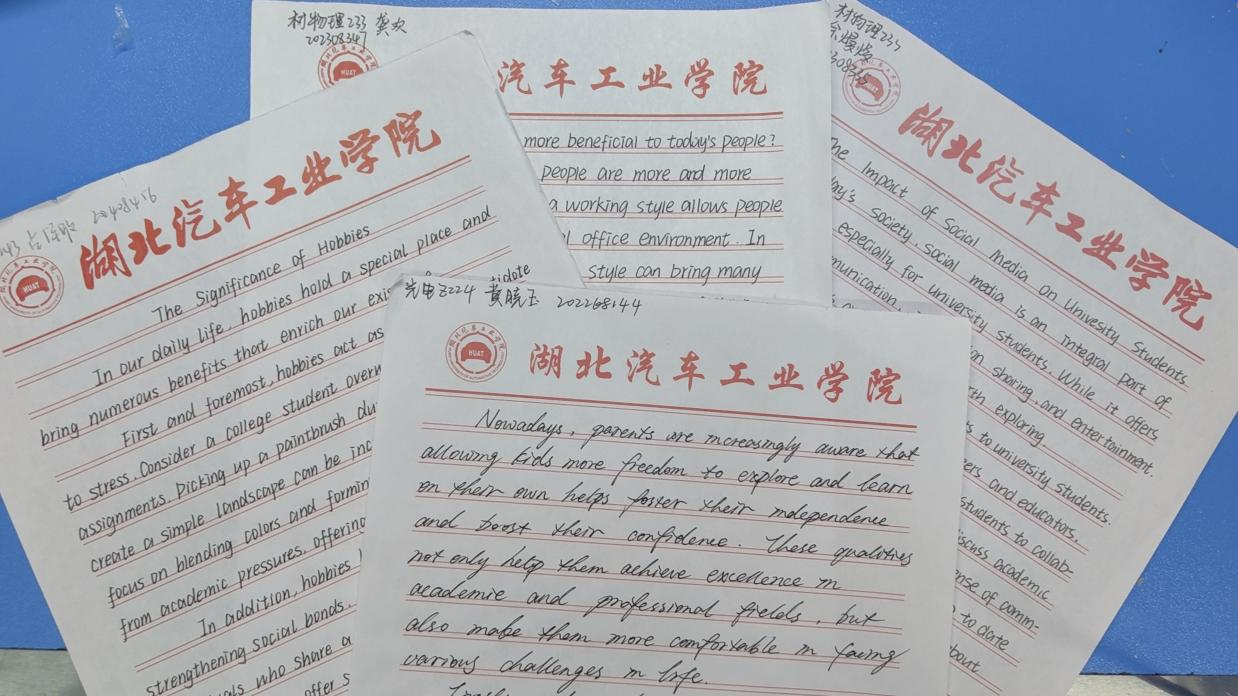 材物理233 龚欢
202308347
HUAT
汽车工业学院
more beneficial to today's people?
people are more and more
a working style allows people
office environment. In
style can bring many
材物理233
湖北汽车工业学院
The Impact of Social Media On Univesity Students
day's society, social media is an integral part of
especially for university students. While it offers
sharing, and entertainment.
exploring
to university students.
and educators.
students to collab-
academic
sense of comm-
to date
about
202408456
湖北汽车工业学院
HUAT
The Significance of Hobbies
In our daily life, hobbies hold a special place and
bring numerous benefits that enrich our
First and foremost, hobbies act as
to stress. Consider a college student
assignments. Picking up a paintbrush
create a simple landscape can be
focus on blending colors and
from academic pressures, offering
In addition, hobbies
strengthening social bonds.
who share a
offer
光电Z224 黄晓玉 202268144
湖北汽车工业学院
HUAT
Nowadays, parents are increasingly aware that
allowing kids more freedom to explore and learn
on their own helps foster their independence
and boost their confidence. These qualities
not only help them achieve excellence in
academic and professional fields, but
also make them more comfortable in facing
various challenges in life.